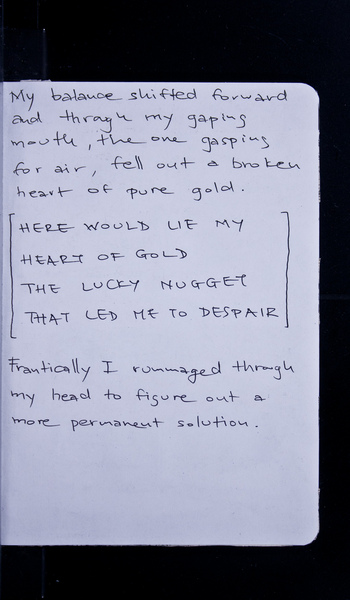 My balance shifted forward
and through my gaping
mouth, the one gasping
for air, fell out a broken
heart of pure gold.
[HERE WOULD LIE MY
HEART OF GOLD
THE LUCKY NUGGET
THAT LED ME TO DESPAIR]
Frantically I rummaged through
my head to figure out a
more permanent solution.